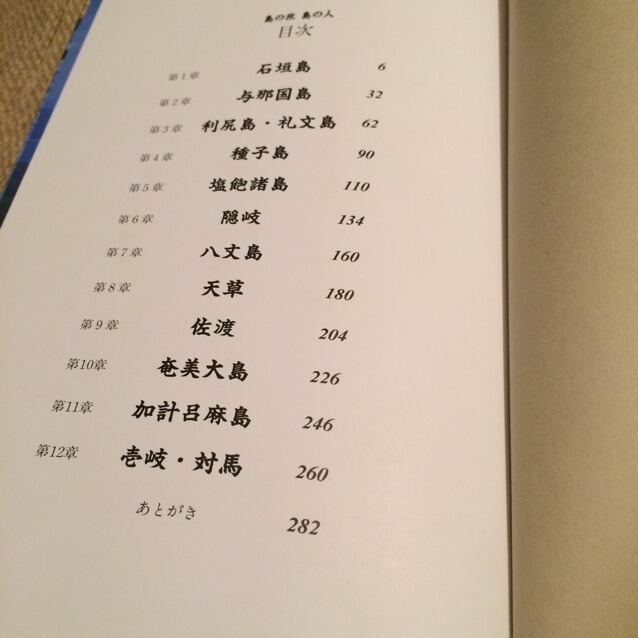 島の旅 島の人
目次
第1章 石垣島 6
第2章 与那国島 32
第3章 利尻島・礼文島 62
第4章 種子島 90
第5章 塩飽諸島 110
第6章 隠岐 134
第7章 八丈島 160
第8章 天草 180
第9章 佐渡 204
第10章 奄美大島 226
第11章 加計呂麻島 246
第12章 壱岐・対馬 260
あとがき 282